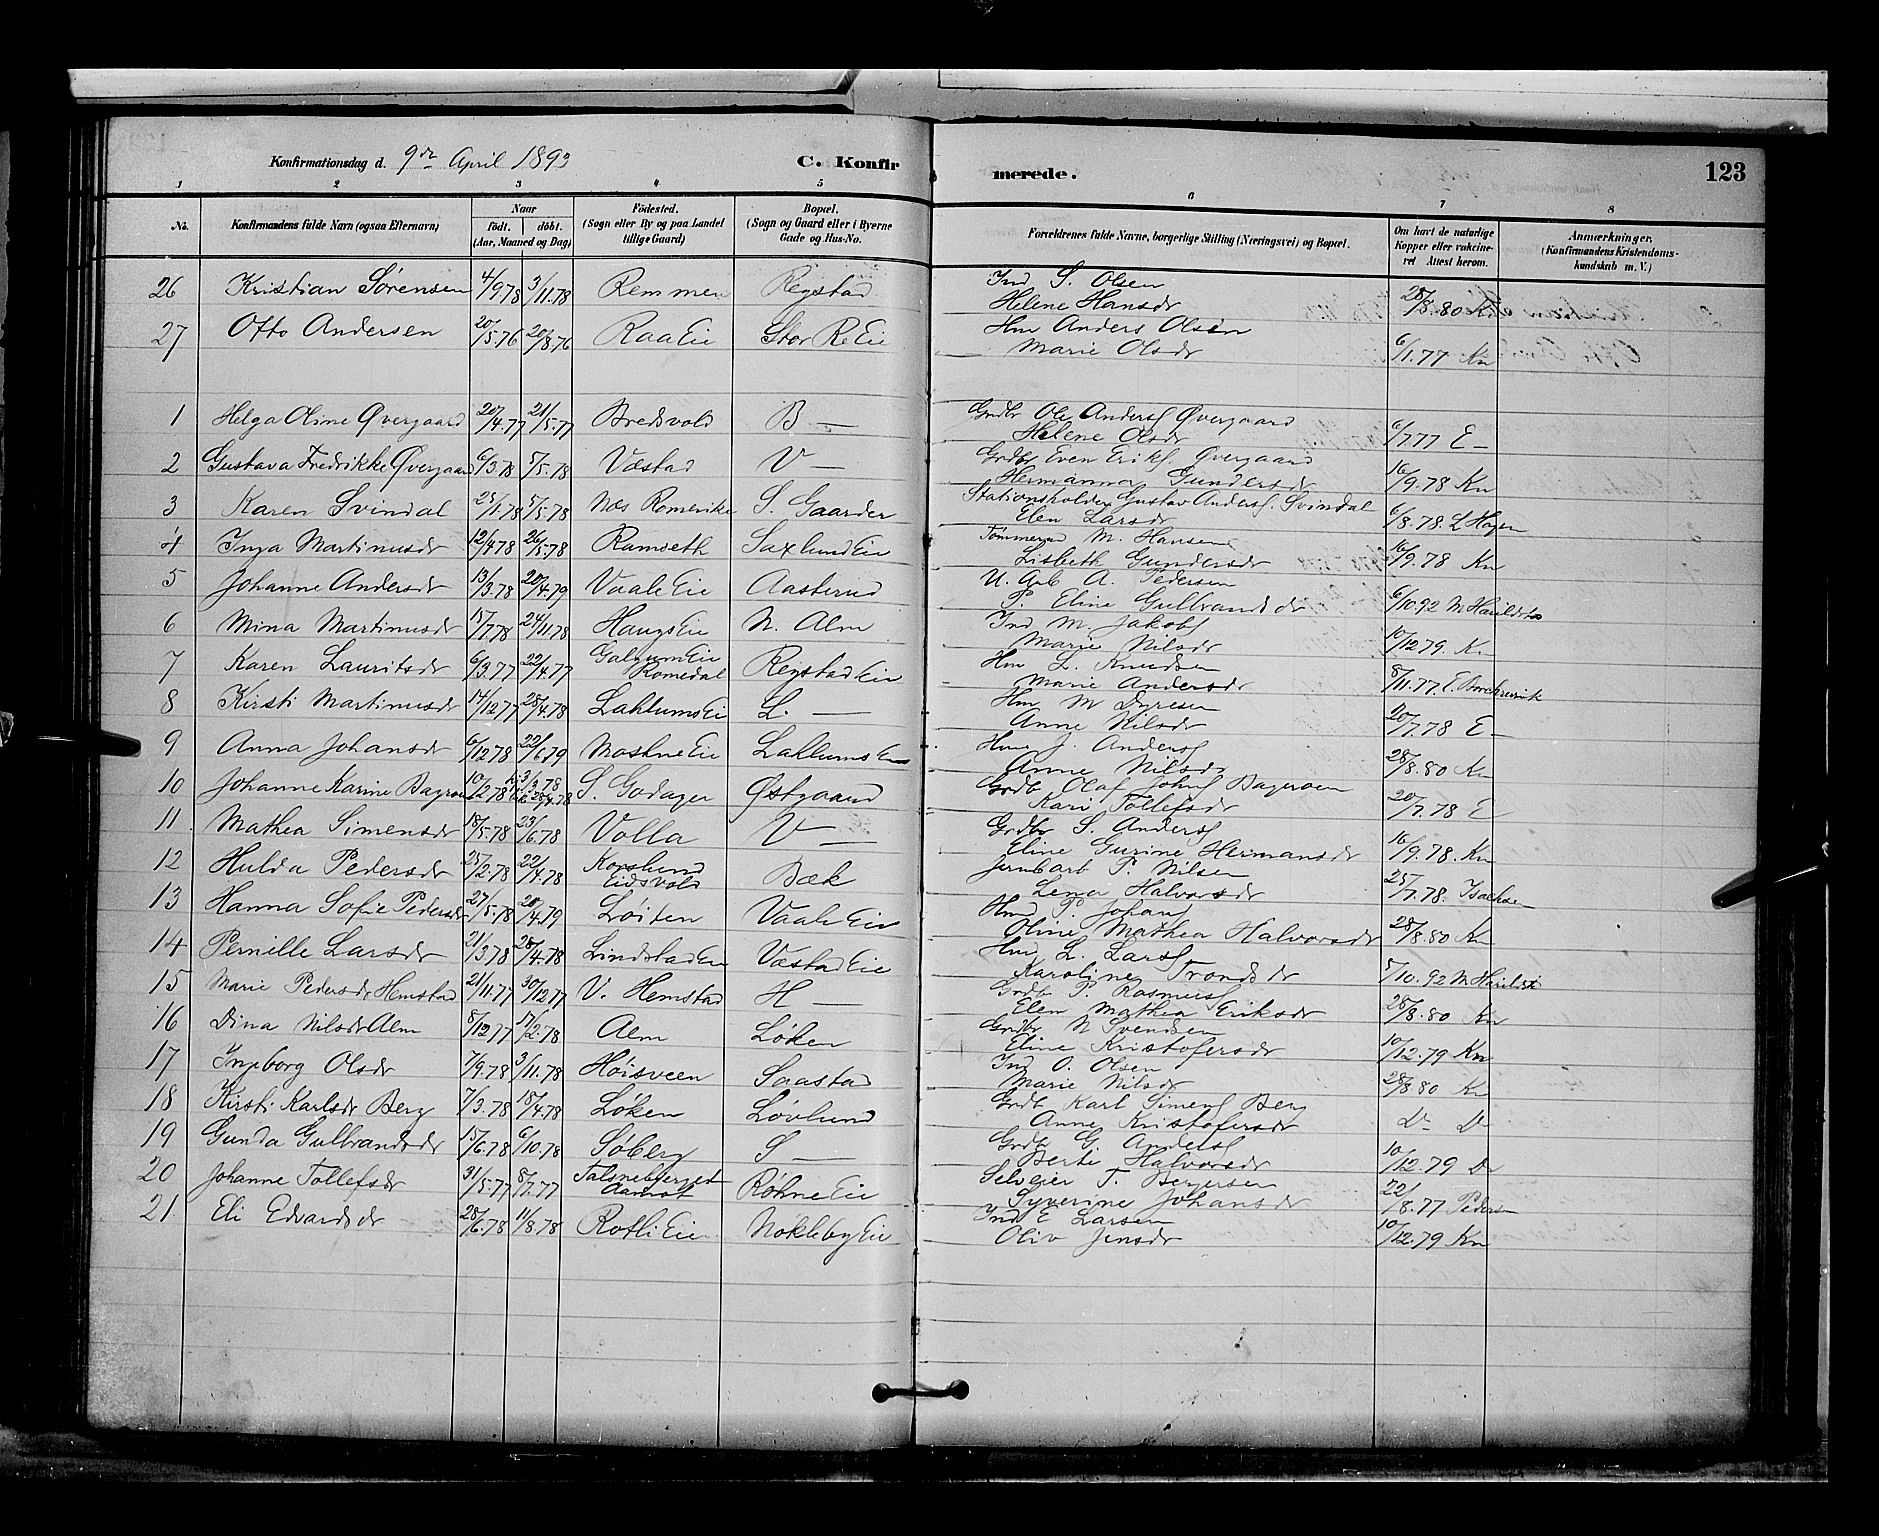 Konfirmationsdag d. 9de April 1893 C. Konfirmerede. 123
1 2 3 4 5 6 7 8
No. Konfirmandens fulde Navn (ogsaa Efternavn) Naar født. døbt. (Aar, Maaned og Dag) Fødested. (Sogn eller By og paa Landet tillige Gaard) Bopæl. (Sogn og Gaard eller i Byerne Gade og Hus-No. Forældrenes fulde Navne, borgerlige Stilling (Næringsvei) og Bopæl. Om havt de naturlige Kopper eller vakcineret Attest herom. Anmærkninger. (Konfirmandens Kristendomskundskab m. V.)
26 Kristian Sørensen 4/9.78 3/11.78 Remmen Regstad Ind S. Olsen
Helene Hansdr 28/8.80 Kn
27 Otto Andersen 20/5.76 20/8.76 Raa Eie Stor Re Eie Hm Anders Olsen
Marie Olsdr 6/1.77 Kn
1 Helga Oline Øvergaard 20/4.77 21/5.77 Bredsvold B — Grdbr Ole Anders. Øvergaard
Helene Olsdr 6/7.77 E —
2 Gustava Fredrikke Øvergaard 6/3.78 5/5.78 Væstad V — Grdbr Even Eriks. Øvergaard
Hermanna Gundersdr 16/9.78 Kn
3 Karen Svindal 23/1.78 5/5.78 Nes Romerike S. Gaarder Stationsholder Gustav Anders. Svindal
Elen Larsdr 6/8.78. L Hagen
4 Inga Martinusdr 12/4.78 26/5.78 Ramseth Saxlund Eie Tømmermd M. Hansen
Lisbeth Gundersdr 16/9.78 Kn
5 Johanne Andersdr 13/3.78 20/4.79 Vaale Eie Aasterud U. Arb. A. Pedersen
P. Eline Gulbrandsdr 6/10.92
6 Mina Martinusdr 17/7.78 24/11.78 Haugs Eie N. Alm Ind M. Jakobs
Marie Nilsdr 10/12.79. Kn
7 Karen Lauritsdr 6/3.77 22/4.77 Galgum Eie Romedal Regstad Eie Hm L. Knudsen
Marie Andersdr 8/11.77. E. Borchrevink
8 Kirsti Martinusdr 14/12.77 28/4.78 Lahlums Eie L. — Hm M Dyresen
Anne Nilsdr 20/7.78 E —
9 Anna Johansdr 6/12.78 22/6.79 Mostue Eie Lahlums Eie Hm J. Anders
Anne Nilsdr 28/8.80 Kn
10 Johanne Karine Bagroen 10/2.78 3/3.78 28/4.78 S. Godager Østgaard Grdb Olaf Johns Bageroen
Kari Tollefsdr 20/7.78 E
11 Mathea Simensdr 18/5.78 23/6.78 Volla V — Grdbr S. Anders
Eline Gurine Hermansdr 16/9.78. Kn
12 Hulda Pedersdr 25/2.78 22/4.78 Korslund Eidsvold Bæk Jernbarb P. Nilsen
Lena Halvorsdr 25/7.78. Isachsen
13 Hanna Sofie Pedersdr 27/5.78 20/4.79 Løiten Vaale Eie Hmd P. Johans
Oline Mathea Halvorsdr 28/8.80 Kn
14 Pernille Larsdr 21/3.78 28/4.78 Lindstad Eie Væstad Eie Hm L. Lars
Karoline Trondsdr 5/10.92
15 Marie Pedersdr Hemstad 21/11.77 30/12.77 V. Hemstad H — Grdb P. Rasmus
Elen Mathea Eriksdr 28/8.80 Kn
16 Dina Nilsdr Alm 8/12.77 17/2.78 Alm Løken Grdbr N Svendsen
Eline Kristofersdr 10/12.79 Kn
17 Ingeborg Olsdr 7/9.78 3/11.78 Høisveen Saastad Ind O. Olsen
Marie Nilsdr 28/8.80 Kn
18 Kirsti Karlsdr Berg 7/3.78 18/4.78 Løken Løvlund Grdb Karl Simens Berg
Anne Kristofersdr Do Do
19 Gunda Gulbrandsdr 15/6.78 6/10.78 Søberg S — Grdb G. Anders
Berte Halvorsdr 10/12.79 Do
20 Johanne Tollefsdr 31/5.77 8/7.77 Aamot Røhne Eie Selveier T. Bergersen
Syverine Johansdr 22/8.77 Pedersen
21 Eli Edvardsdr 28/6.78 11/8.78 Rotli Eie Nøkleby Eie Ind E Larsen
Oliv Jensdr 10/12.79 Kn